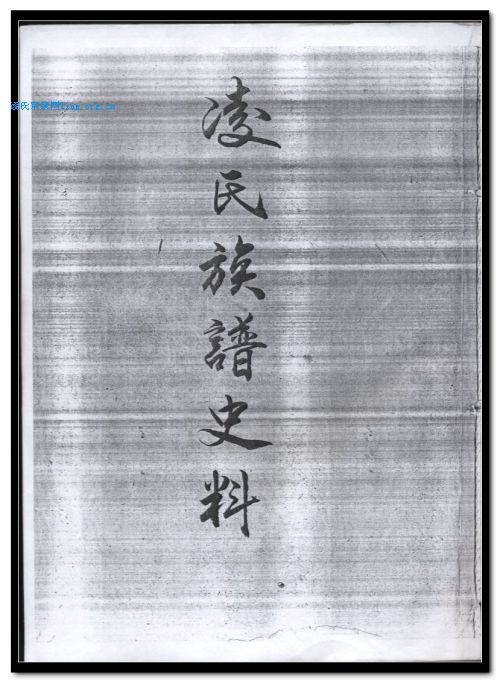 凌氏族譜史料